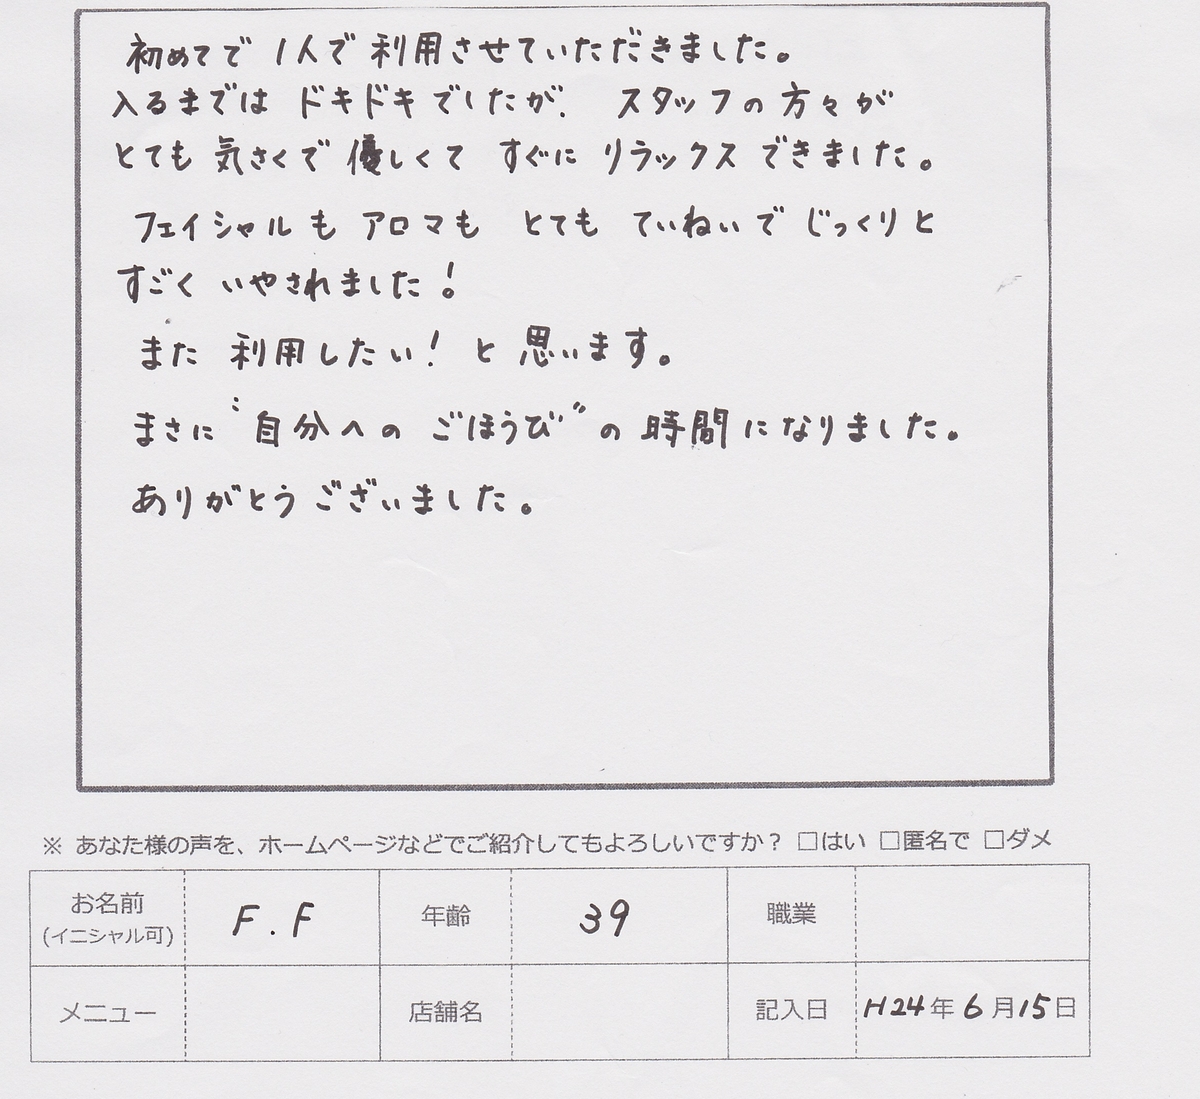 初めてで1人で利用させていただきました。
入るまでは ドキドキでしたが、 スタッフの方々が
とても 気さくで 優しくて すぐに リラックス できました。
フェイシャルも アロマも とても ていねいで じっくりと
すごく いやされました!
また 利用したい! と 思います。
まさに “自分への ごほうび” の 時間になりました。
ありがとうございました。
※ あなた様の声を、ホームページなどでご紹介してもよろしいですか? □はい □匿名で □ダメ
お名前 F.F 年齢 39 職業
(イニシャル可)
メニュー 店舗名 記入日 H24年6月15日